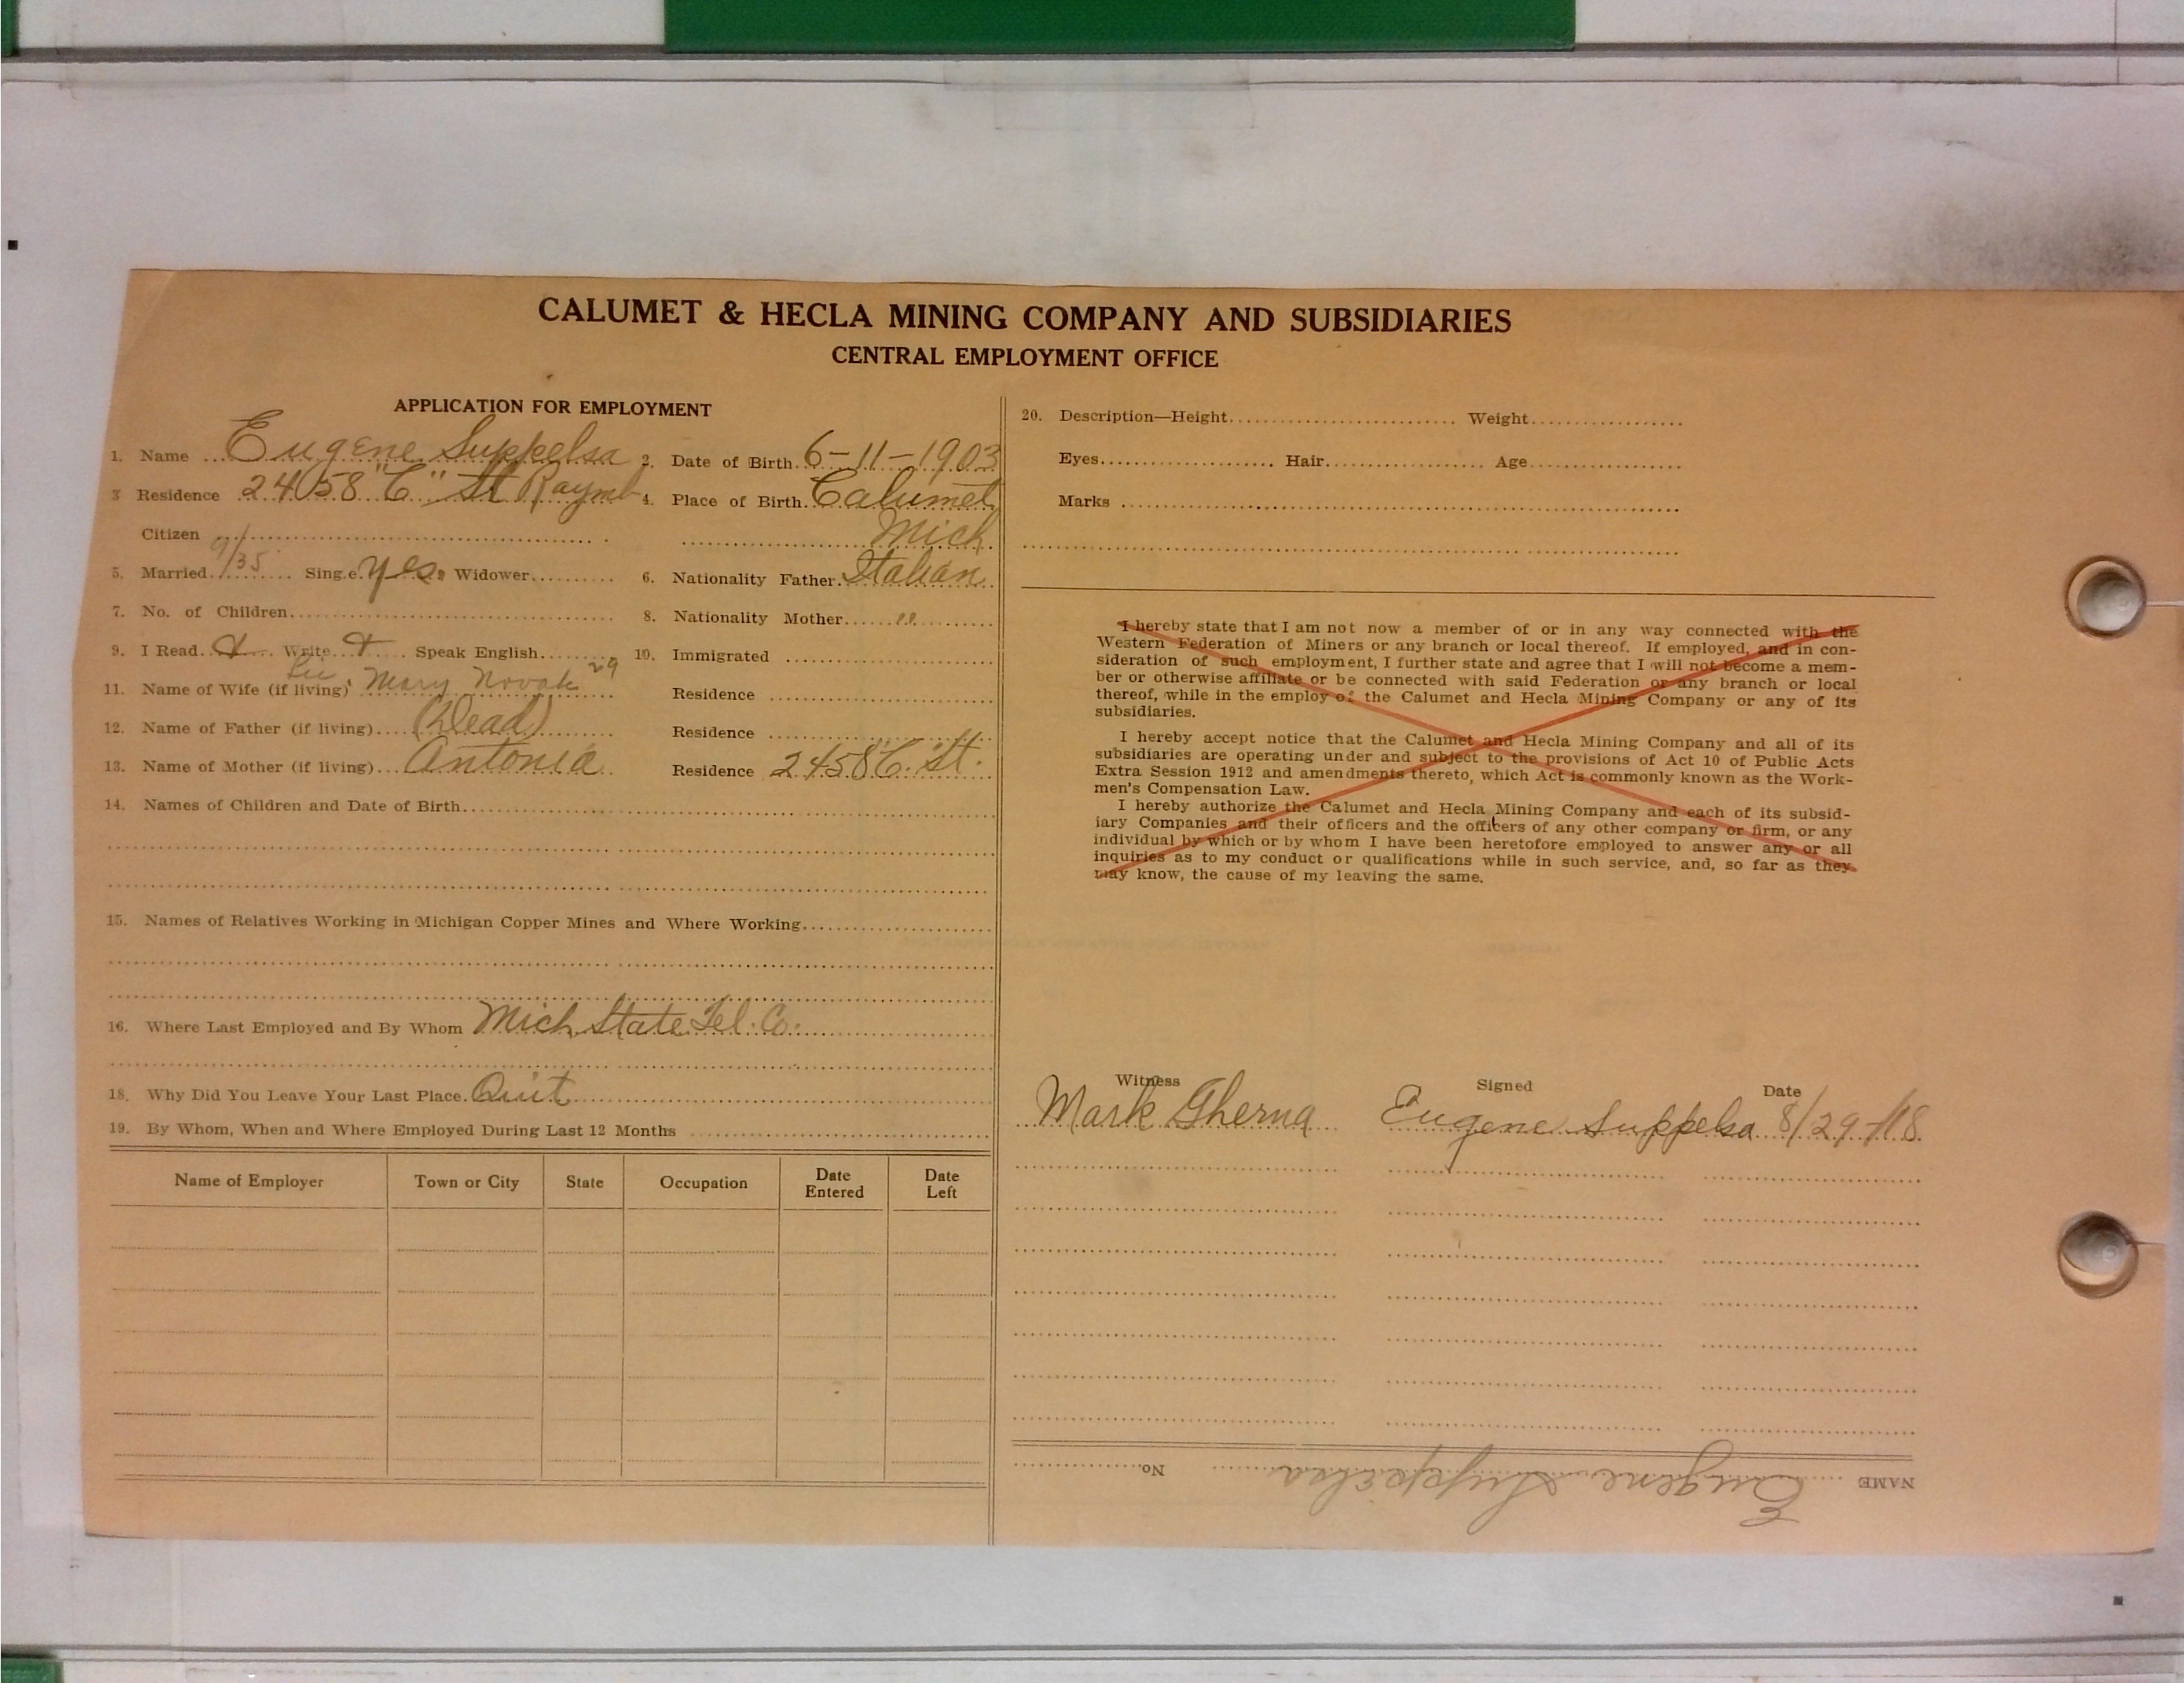 CALUMET & HECLA MINING COMPANY AND SUBSIDIARIES
CENTRAL EMPLOYMENT OFFICE
APPLICATION FOR EMPLOYMENT
1. Name Eugene Suppelsa 2. Date of Birth 6-11-1903
3 Residence 2458 "C" St Raymb 4. Place of Birth Calumet
Citizen Mich
5. Married 9/35 Sing.e yes Widower 6. Nationality Father Italian
7. No. of Children 8. Nationality Mother "
9. I Read Write Speak English 10. Immigrated
11. Name of Wife (if living) Mary Novak 29 Residence
12. Name of Father (if living) (Dead) Residence
13. Name of Mother (if living) Antonia Residence 2458 C St.
14. Names of Children and Date of Birth
15. Names of Relatives Working in Michigan Copper Mines and Where Working
16. Where Last Employed and By Whom Mich State Tel. Co.
18. Why Did You Leave Your Last Place Quit
19. By Whom, When and Where Employed During Last 12 Months
Name of Employer Town or City State Occupation Date Entered Date Left
20. Description—Height Weight
Eyes Hair Age
Marks
I hereby state that I am not now a member of or in any way connected with the
Western Federation of Miners or any branch or local thereof. If employed, and in con-
sideration of such employment, I further state and agree that I will not become a mem-
ber or otherwise affiliate or be connected with said Federation or any branch or local
thereof, while in the employ of the Calumet and Hecla Mining Company or any of its
subsidiaries.
I hereby accept notice that the Calumet and Hecla Mining Company and all of its
subsidiaries are operating under and subject to the provisions of Act 10 of Public Acts
Extra Session 1912 and amendments thereto, which Act is commonly known as the Work-
men's Compensation Law.
I hereby authorize the Calumet and Hecla Mining Company and each of its subsid-
iary Companies and their officers and the officers of any other company or firm, or any
individual by which or by whom I have been heretofore employed to answer any or all
inquiries as to my conduct or qualifications while in such service, and, so far as they
may know, the cause of my leaving the same.
Witness Signed Date
Mark Gherna Eugene Suppelsa 8/29-18
NAME Eugene Suppelsa No.